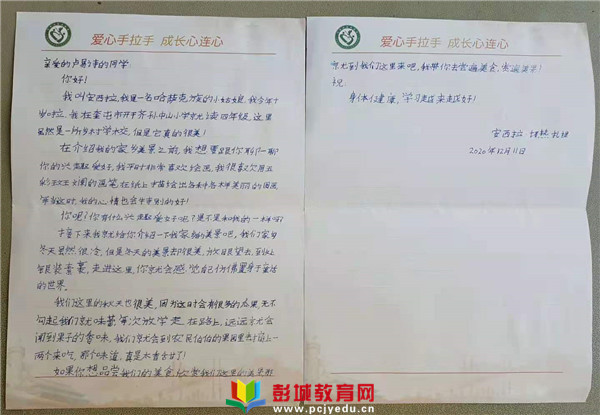 爱心手拉手 成长心连心
亲爱的卢
的同学:
你好!
我叫安西拉,我是一名哈萨克族的小姑娘,我今年十
岁啦,我在奎屯市开干齐孙中山小学就读四年级,这里
虽然是一所乡村学校,但是它真的很美!
在介绍我的家乡美景之前,我想要跟你聊一聊
你的兴趣爱好,我平时非常喜欢绘画,我很喜欢用五
彩斑斓的画笔在纸上描绘出各种各样美丽的图画
等到这时,我的心情也会特别的好!
你呢?你有什么兴趣爱好吧?是不是和我的一样呀?
接下来我就给你介绍一下我家乡的美景吧,我们家乡
冬天虽然很冷,但是冬天的美景却很美,放眼望去,到处
银装素裹,走进这里,你就会感觉自己仿佛置身于童话
的世界。
我们这里的秋天也很美,因为这时会有很多的瓜果,无不
勾起我们的味蕾,每次放学走在路上,远远就会
闻到果子的香味,我们就会到农民伯伯的果园里去摘上一
两个来吃,那个味道,真是太香甜了!
如果你想品尝我们的美食,欣赏我们这里的美景那
爱心手拉手 成长心连心
就到我们这里来吧,我带你去尝遍美食,赏遍美景!
祝
身体健康,学习越来越好!
安西拉
2020年12月11日
彭城教育网
www.pcjyedu.cn